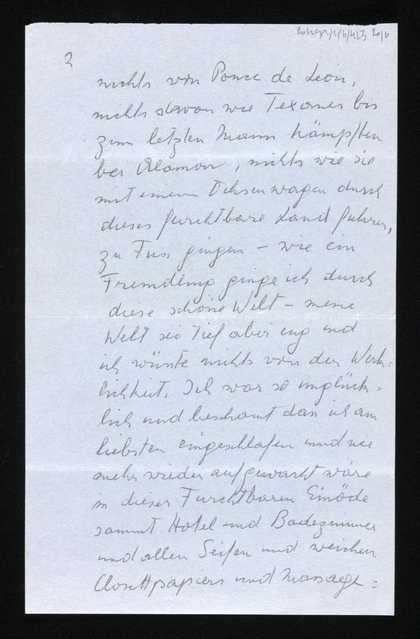 2
nichts von Ponce de Leon,
nichts davon wie Texaner bis
zum letzten Mann kämpften
bei Alamon, nichts wie sie
mit einem Ochsenwagen durch
dieses furchtbare Land fuhren,
zu Fuss gingen – wie ein
Fremdling ginge ich durch
diese schöne Welt – meine
Welt sei tief aber eng und
ich wüsste nichts von der Wirk-
lichkeit. Ich war so unglück-
lich und beschämt dass ich am
liebsten eingeschlafen und nie
mehr wieder aufgewacht wäre
in dieser Furchtbaren Einöde
sammt Hotel und Badezimmer
und allen Seifen und weichen
Closettpapiers und Massage=